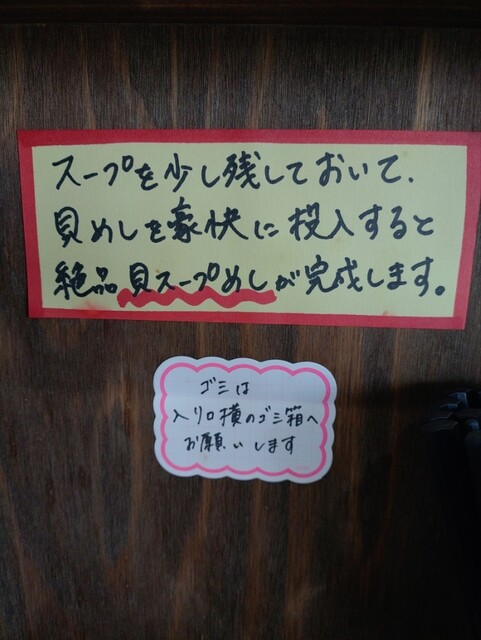 スープを少し残しておいて、
貝めしを豪快に投入すると
絶品貝スープめしが完成します。
ゴミは
入り口横のゴミ箱へ
お願いします